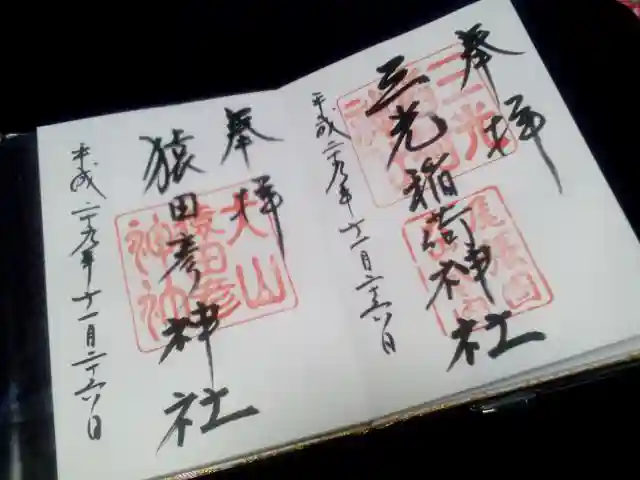 奉拝
三光
三光稲荷神社
尾張国
平成二十九年十一月二十六日
奉拝
犬山
猿田彦
猿田彦神社
平成二十九年十一月二十六日